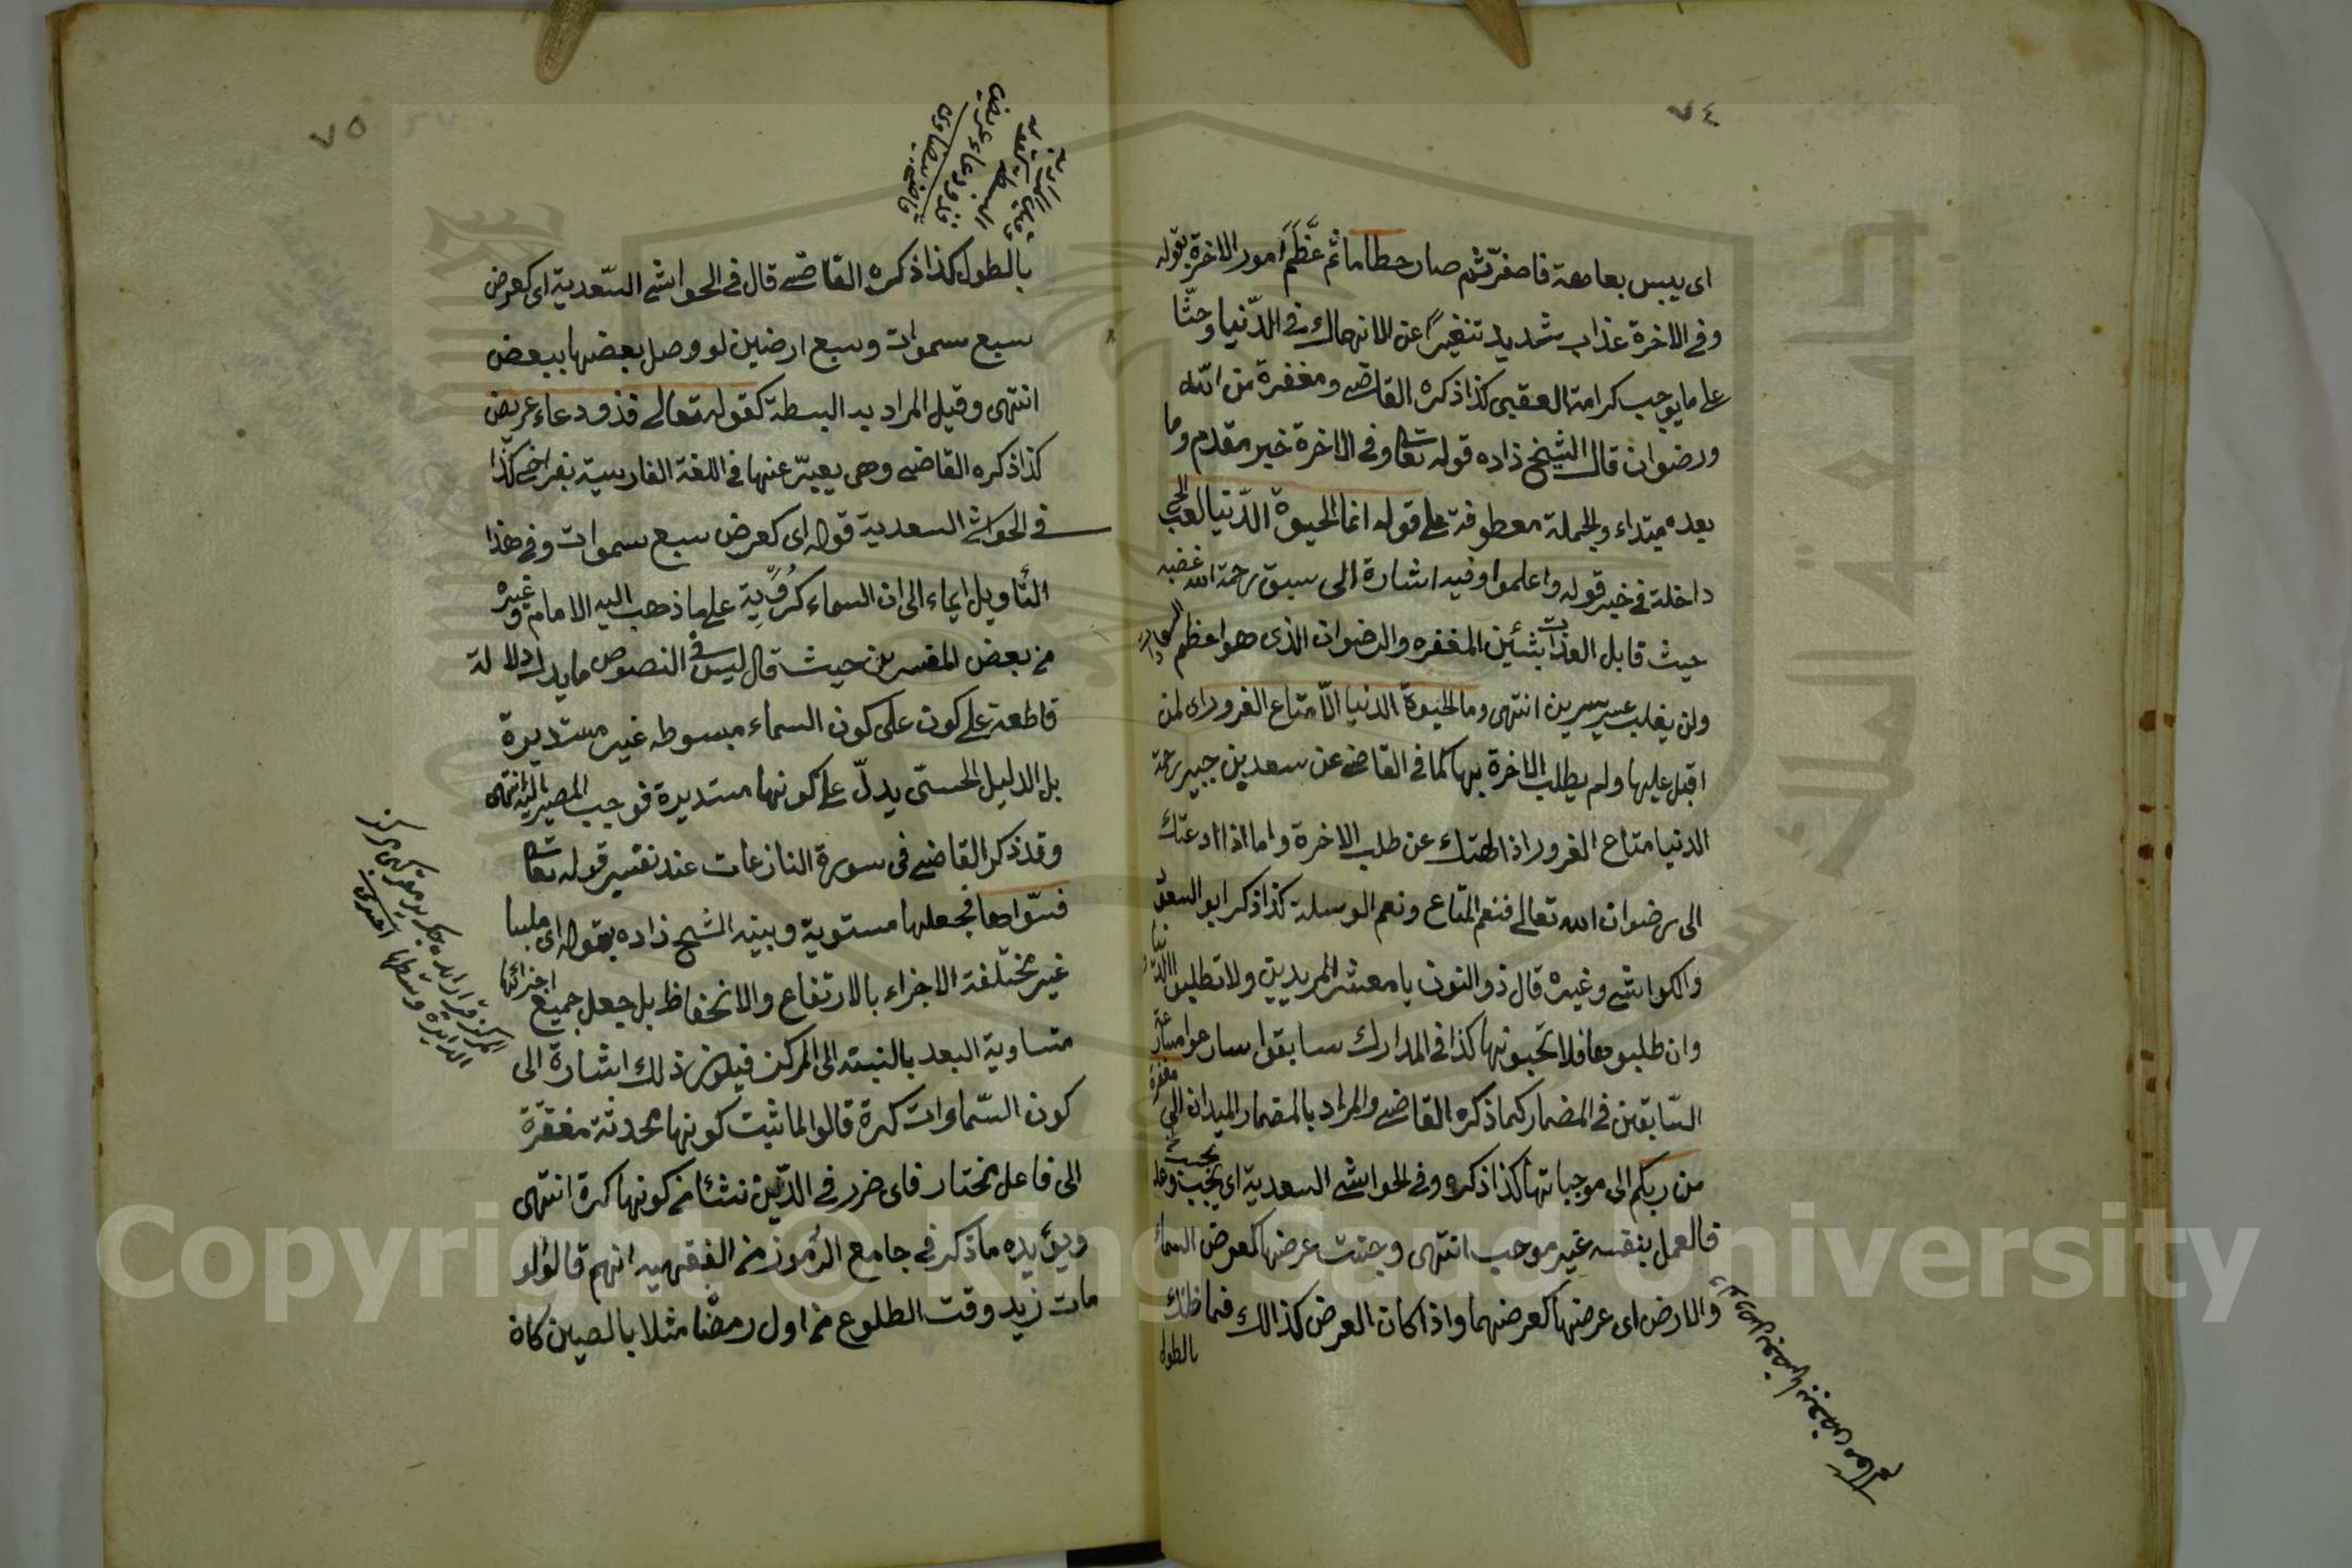 ٧٤
اى يبس بعاهة فاصفرّ ثم صار حطاما ثم عَظَّمَ امور الاخرة بقوله
وفى الاخرة عذاب شديد تنفيرًا عن الانهماك فى الدّنيا وحثّا
على ما يوجب كرامة العقبى كذا ذكره القاضى ومغفرة من الله
ورضوان قال الشيخ زاده قوله تعا وفى الاخرة خبر مقدم وما
بعده مبتداء والجملة معطوفة على قوله انما الحيوة الدّنيا لعب الخ
داخلة فى خبر قوله واعلموا وفيه اشارة الى سبق رحمة الله غضبه
حيث قابل العذاب بشئين المغفره والرضوان الذى هو اعظم
ولن يغلب عسر يسرين انتهى وما الحيوة الدنيا الّا متاع الغرور اى لمن
اقبل عليها ولم يطلب الاخرة بها كما فى القاضى عن سعد بن جبير رحمة
الدنيا متاع الغرور اذا الهتك عن طلب الاخرة واما اذا ادعتك
الى رضوان الله تعالى فنعم المتاع ونعم الوسلة كذا ذكر ابو السعود
والكواشى وغيره قال ذو النون يا معشر المريدين ولا تطلبوا الدّنيا
وان طلبوها فلا تحبونها كذا فى المدارك سابقوا سارعوا مسارعة
السّابقين فى المضمار كما ذكره القاضى والمراد بالمضمار الميدان الى مغفرة
من ربكم الى موجباتها كذا ذكره وفى الحواشى السعدية اى بحسب وعده
فالعمل بنفسه غير موجب انتهى وجنت عرضها كعرض السماء
والارض اى عرضها كعرضهما واذا كان العرض كذالك فما ظنك
بالطول
٧٥
بالطول كذا ذكره القاضى قال فى الحواشى السّعدية اى كعرض
سبع سموات وسبع ارضين لو وصل بعضها ببعض
انتهى وقيل المراد به البسطة كقوله تعالى فذو دعاء عريض
كذا ذكره القاضى وهى يعبّر عنها فى اللغة الفارسية بفراخى كذا
فى الحواشى السعدية قوله اى كعرض سبع سموات وفى هذا
التأويل ايماء الى ان السماء كرُوِّية على ما ذهب اليه الامام وغيره
من بعض المفسرين حيث قال ليس فى النصوص ما يدل دلالة
قاطعة على كون على كون السماء مبسوطه غير مستديرة
بل الدليل الحسّى يدلّ على كونها مستديرة فوجب المصير اليه انتهى
وقد ذكر القاضى فى سورة النازعات عند تفسير قوله تعا
فسّواها فجعلها مستوية وبينه الشيخ زاده بقوله اى ملبسا
غير مختلفة الاجزاء بالارتفاع والانخفاظ بل جعل جميع اجزائها
متساوية البعد بالنسبته الى المركز فيكون ذلك اشارة الى
كون السّماوات كرة قالوا لما ثبت كونها محدثة مفقرّة
الى فاعل مختار فاى ضرر فى الدّين نشئا من كونها كرة انتهى
ويؤيده ما ذكر فى جامع الرّموز من الفقهيه انهم قالوا لو
مات زيد وقت الطلوع من اول رمضا مثلا بالصين كان
Copyright © King Saud University